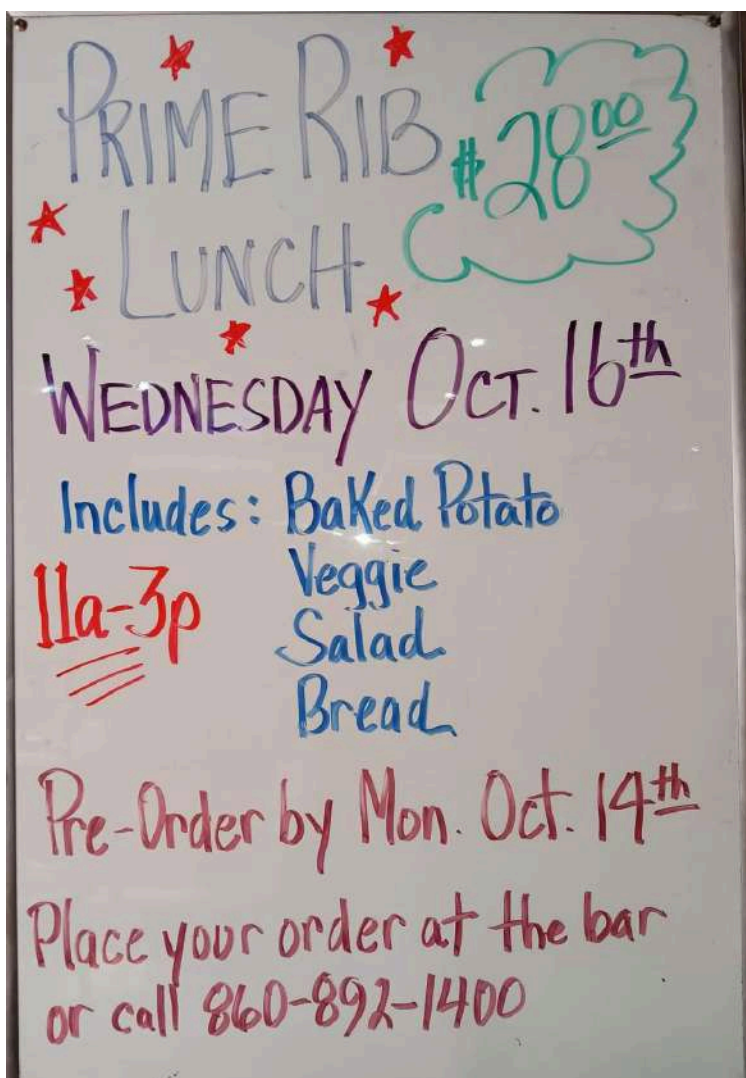 PRIME RIB
$28.00
LUNCH
WEDNESDAY OCT. 16th
Includes: Baked Potato
Veggie
11a-3p
Salad
Bread
Pre-Order by Mon. Oct. 14th
Place your order at the bar
or call 860-892-1400